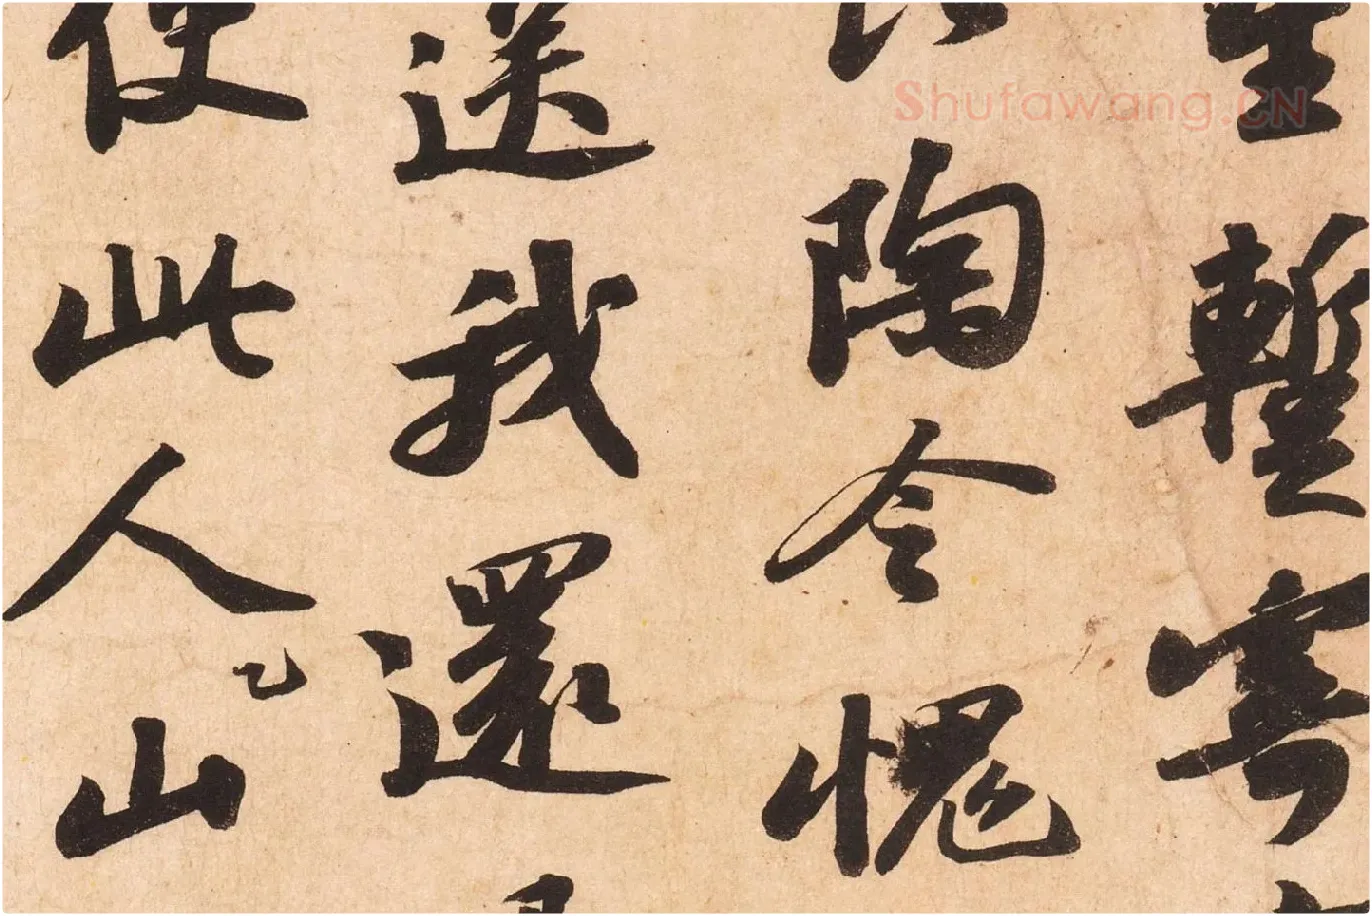 生暫寄
陶令愧
送我還
使此人山
Shufawang.CN